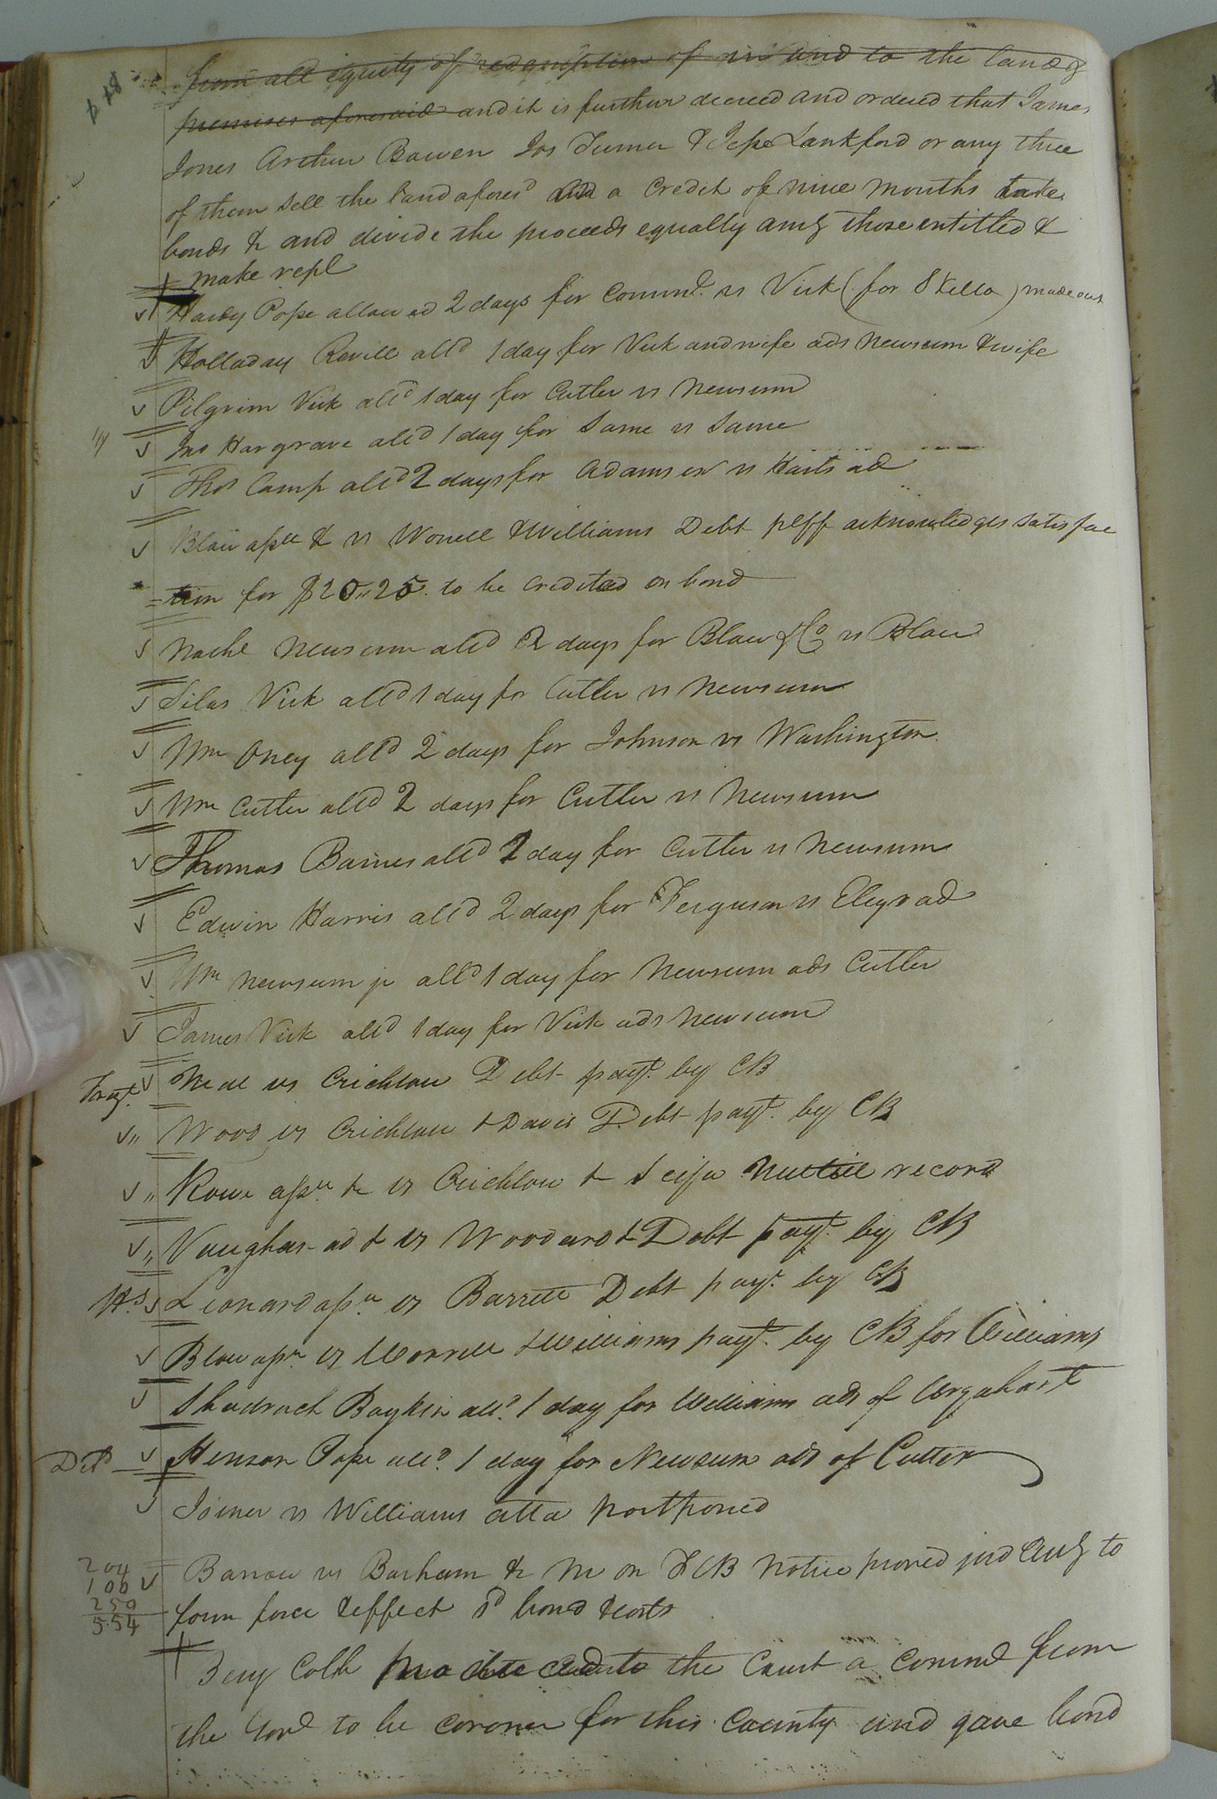 from all equity of redemption of in and to the land &
premises aforesaid and it is further decreed and ordered that James
Jones Arthur Bowen Jos Turner & Jesse Lankford or any three
of them sell the land afores^d on a credit of nine months take
bonds & and divide the proceeds equally am^g those entitled &
make rep^t
Hardy Pope allowed 2 days for Commn^d. vs Vick (for Skills) made out
Holladay Revill all^d 1 day for Vick and wife ads Newsum & wife
Pilgrim Vick all^d 1 day for Cutler vs Newsum
Jno Hargrave all^d 1 day for Same vs Same
Tho^s Camp all^d 2 days for Adamson vs Harts ad
Blow ass^ee & vs Worrell & Williams Debt plff acknowledges satisfac
=tion for $20.,25. to be credited on bond
Nathl Newsum all^d 2 days for Blow & Co vs Blow
Silas Vick all^d 1 day for Cutler vs Newsum
W^m Oney all^d 2 days for Johnson vs Washington
W^m Cutler all^d 2 days for Cutler vs Newsum
Thomas Barnes all^d 1 day for Cutler vs Newsum
Edwin Harris all^d 2 days for Ferguson vs Eley's ad
W^m Newsum jr all^d 1 day for Newsum ads Cutler
James Vick all^d 1 day for Vick ads Newsum
vs Crichlow Debt pay^t. by CB
Wood vs Crichlow & Davis Debt pay^t. by CB
vs Crichlow & Scifa Nul tiel record
Vaughan ad & vs Woodard & Debt pay^t. by CB
Leonard ass^ee vs Barrett Debt pay^t. by CB
Blow ass^ee vs Worrell & Williams pay^t. by CB for Williams
Shadrach Boykin all^d. 1 day for Williams ads of Urquhart
Henson Pope all^d. 1 day for Newsum ads of Cutler
Joiner vs Williams atta postponed
204
100
250
5.54
Barrow vs Barham & Mo on FCB Notice proved jud Acc^g to
form force & effect s^d bond & costs
Benj Cobb produced to the Court a Commn from
the Gov^r to be coroner for this County and gave bond